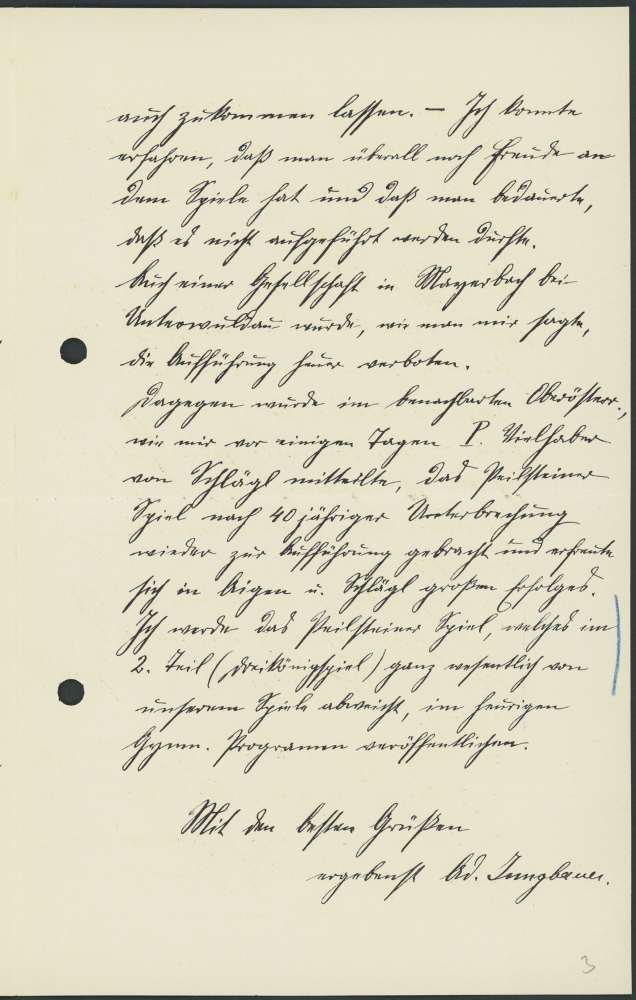 auch zukommen lassen. – Ich konnte
erfahren, daß man überall noch Freude an
dem Spiele hat und daß man bedauerte,
daß es nicht aufgeführt werden durfte.
Auch einer Gesellschaft in Mayerbach bei
Unterwuldau wurde, wie man mir sagte,
die Aufführung heuer verboten.
Dagegen wurde im benachbarten Oberösterr.,
wie mir vor einigen Tagen P. Vielhaber
von Schlägl mitteilte, das Peilsteiner
Spiel nach 40jähriger Unterbrechung
wieder zur Aufführung gebracht und erfreute
sich in Aigen u. Schlägl großen Erfolges.
Ich werde das Peilsteiner Spiel, welches im
2. Teil (Dreikönigspiel) ganz wesentlich von
unserem Spiele abweicht, im heurigen
Gymn. Programm veröffentlichen.
Mit den besten Grüßen
ergebenst Ad. Jungbauer.
3